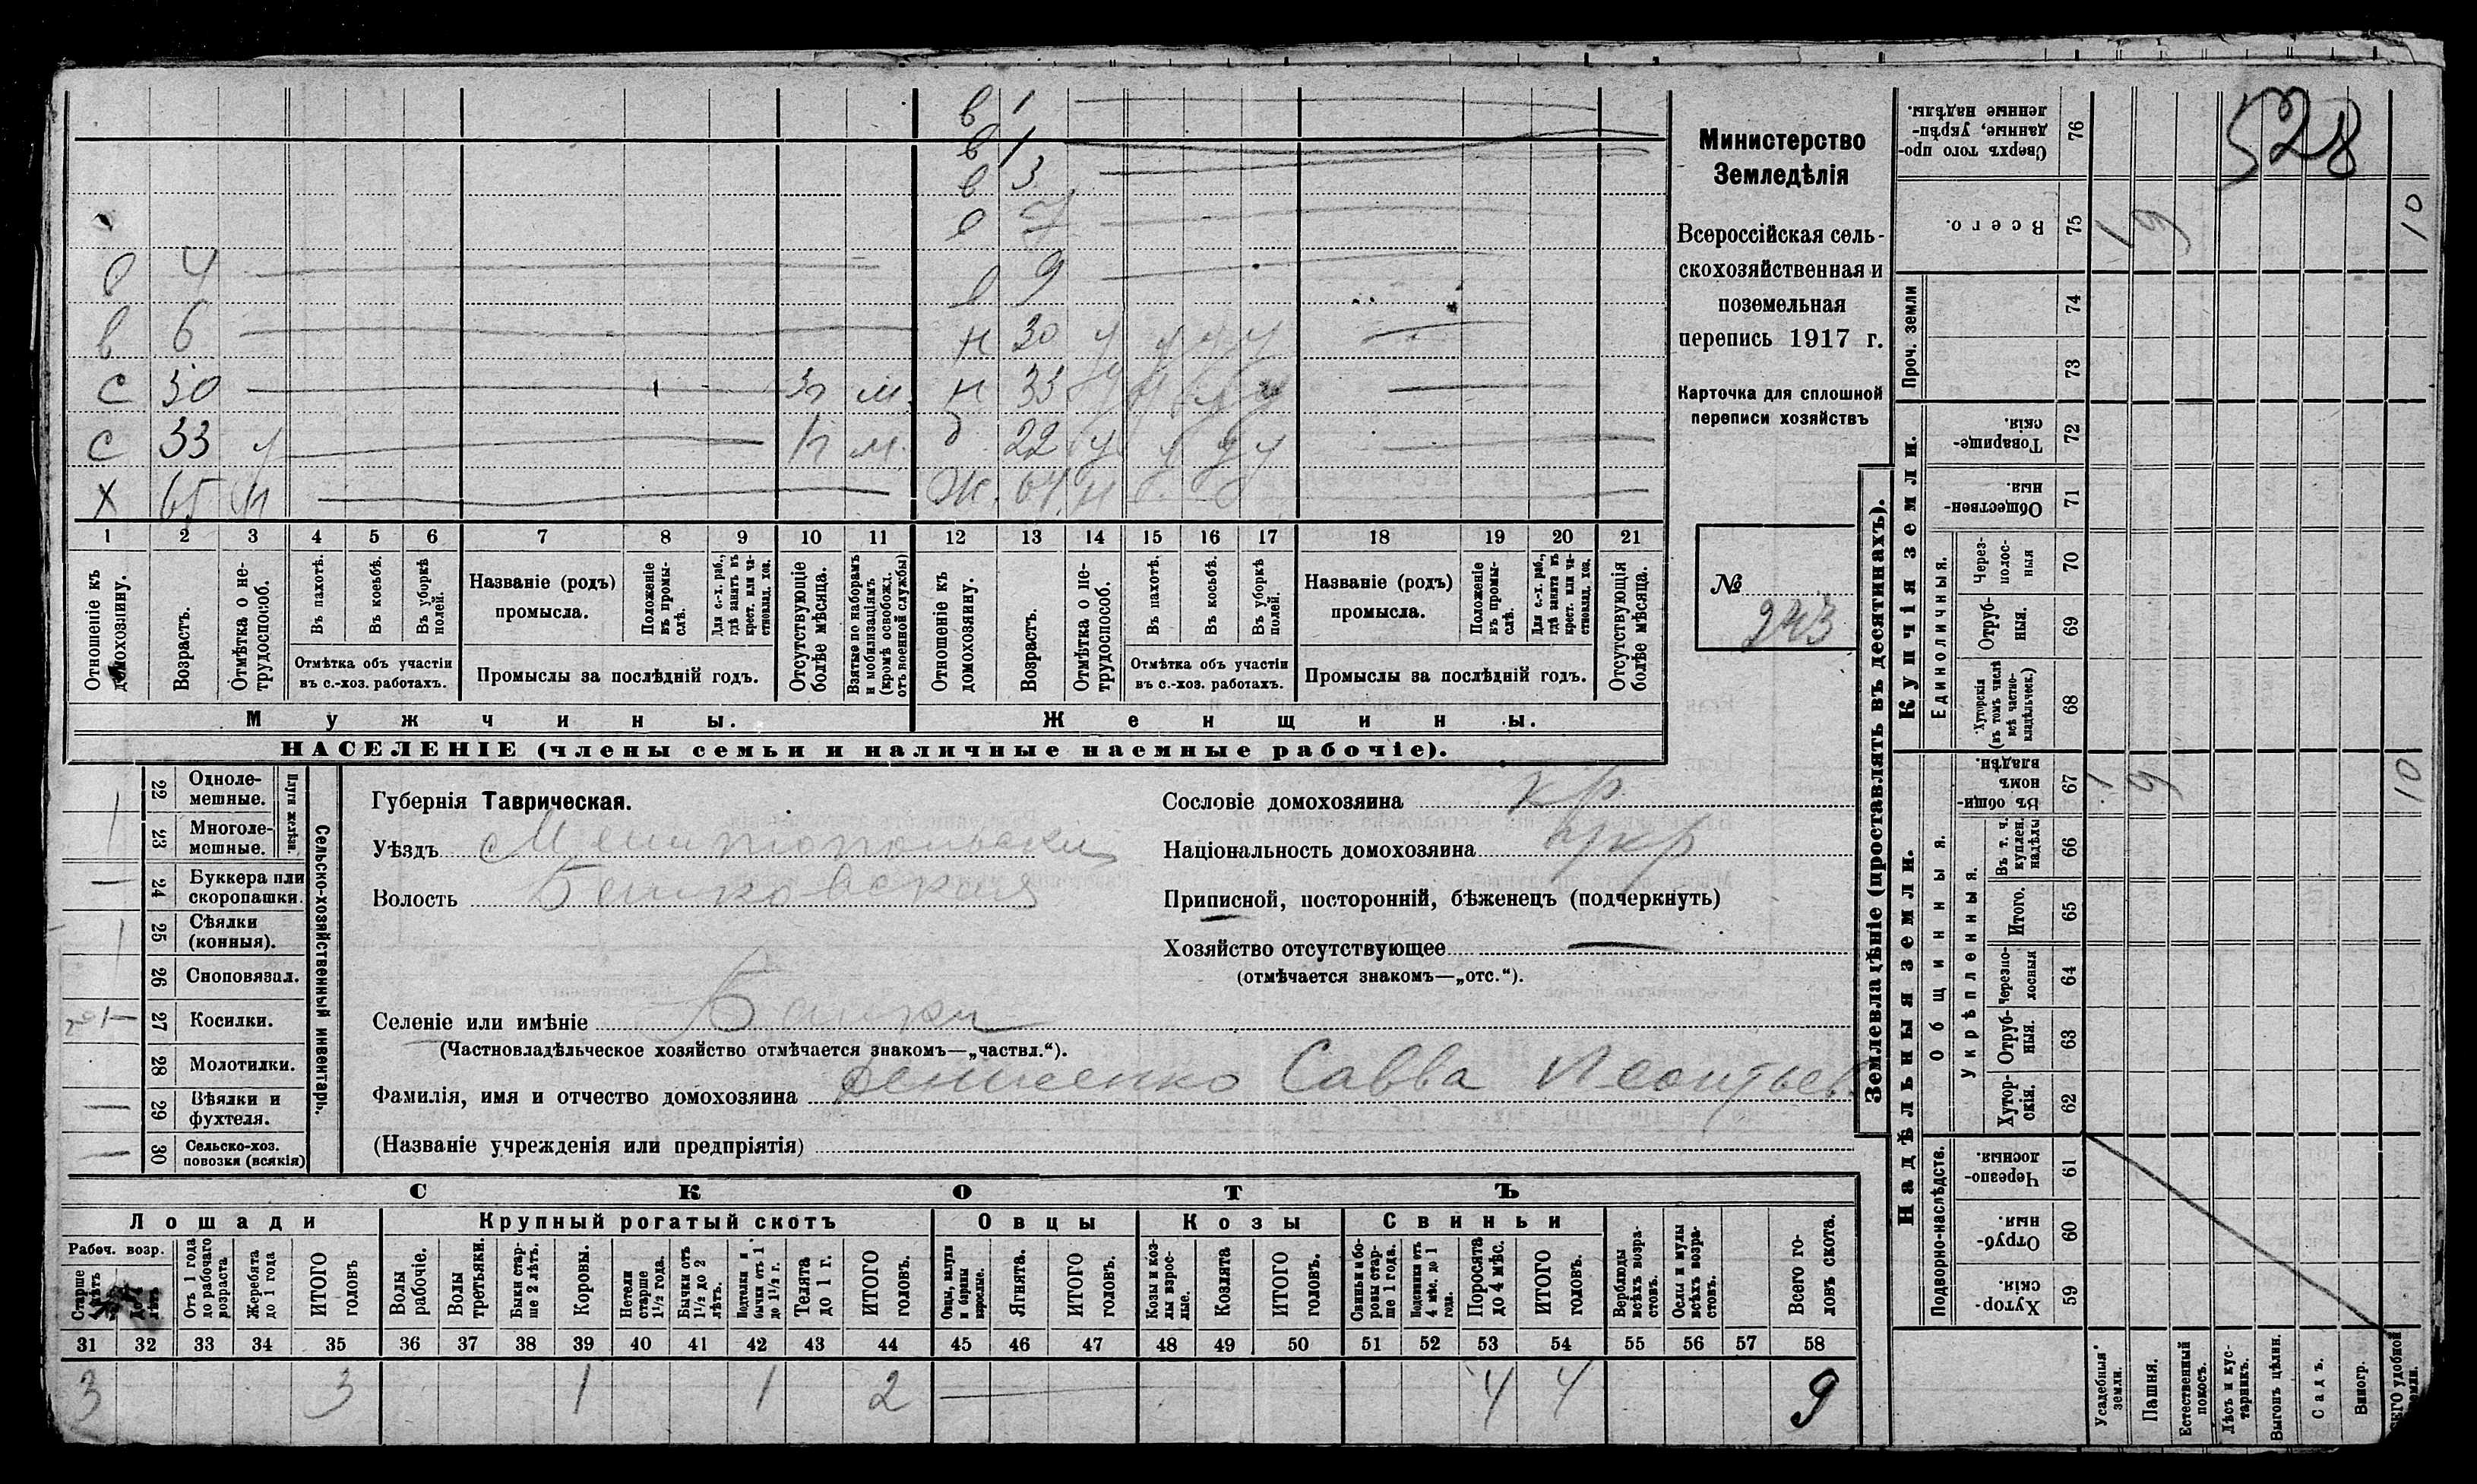 528
в 1
в 1
в 3
в 7
в 4 в 9
в 6 н 30 у у у у
с 30 п м. н 33 у у у у
с 33 у п м. д 22 у у у у
х 65 н ж. 64 н
1 2 3 4 5 6 7 8 9 10 11 12 13 14 15 16 17 18 19 20 21
Отношеніе къ домохозяину.
Возрастъ.
Отмѣтка о не-трудоспособ.
Въ пахотѣ.
Въ косьбѣ.
Въ уборкѣ полей.
Отмѣтка объ участіи
въ с.-хоз. работахъ.
Названіе (родъ)
промысла.
Положеніе въ промы-слѣ.
Для с.-х. раб., гдѣ занятъ въ крест. или ча-стновлад. хоз.
Промыслы за послѣдній годъ.
Отсутствующіе болѣе мѣсяца.
Взятые по наборамъ и мобилизаціямъ (кромѣ освобожд. отъ военной службы)
Отношеніе къ домохозяину.
Возрастъ.
Отмѣтка о не-трудоспособ.
Въ пахотѣ.
Въ косьбѣ.
Въ уборкѣ полей.
Отмѣтка объ участіи
въ с.-хоз. работахъ.
Названіе (родъ)
промысла.
Положеніе въ промы-слѣ.
Для с.-х. раб., гдѣ занята въ крест. или ча-стновлад. хоз.
Промыслы за послѣдній годъ.
Отсутствующія болѣе мѣсяца.
Мужчины.
Женщины.
НАСЕЛЕНІЕ (члены семьи и наличные наемные рабочіе).
Министерство
Земледѣлія
Всероссійская сель-
скохозяйственная и
поземельная
перепись 1917 г.
Карточка для сплошной
переписи хозяйствъ
№
243
Сельско-хозяйственный инвентарь.
Плуги желѣзн.
22 Одноле-мешные.
23 Многоле-мешные.
24 Буккера или скоропашки.
25 Сѣялки (конныя).
26 Сноповязал.
27 Косилки.
28 Молотилки.
29 Вѣялки и фухтеля.
30 Сельско-хоз. повозки (всякія)
Губернія Таврическая.
Уѣздъ Мелитопольскій
Волость
Селеніе или имѣніе
(Частновладѣльческое хозяйство отмѣчается знакомъ—„частвл.“).
Фамилія, имя и отчество домохозяина Савва Леонтьев.
(Названіе учрежденія или предпріятія)
Сословіе домохозяина кр
Національность домохозяина укр
Приписной, посторонній, бѣженецъ (подчеркнуть)
Хозяйство отсутствующее
(отмѣчается знакомъ—„отс.“).
СКОТЪ
Лошади
Крупный рогатый скотъ
Овцы
Козы
Свиньи
Рабоч. возр.
Старше
Отъ 1 года до рабочаго возраста
Жеребята до 1 года
ИТОГО головъ
Волы рабочіе.
Волы третьяки.
Быки стар-ше 2 лѣтъ.
Коровы.
Нетели старше 1½ года.
Бычки отъ 1½ до 2 лѣтъ.
Подтелки и бычки отъ 1 до 1½ г.
Телята до 1 г.
ИТОГО головъ.
Овцы, валухи и бараны взрослые.
Ягнята.
ИТОГО головъ.
Козы и коз-лы взрос-лые.
Козлята
ИТОГО головъ.
Свиньи и бо-ровы стар-ше 1 года.
Подсвинки отъ 4 мѣс. до 1 года.
Поросята до 4 мѣс.
ИТОГО головъ.
Верблюды всѣхъ возра-стовъ.
Ослы и мулы всѣхъ возра-стовъ.
Всего го-ловъ скота.
31 32 33 34 35 36 37 38 39 40 41 42 43 44 45 46 47 48 49 50 51 52 53 54 55 56 57 58
3 3 1 1 2 4 4 9
Землевладѣніе (проставлять въ десятинахъ).
Купчія земли.
Надѣльныя земли.
Сверхъ того про-данные, укрѣп-ленные надѣлы. 76
Всего. 75 1 9 10
Проч. земли
74
73
Товарище-скія. 72
Обществен-ныя. 71
Единоличныя.
Через-полос-ныя 70
Отруб-ныя. 69
Хуторскія (въ томъ числѣ всѣ частно-владѣльческ.) 68
Общинныя.
Въ общин-номъ владѣн. 67 1 9 10
Укрѣпленныя.
Въ т. ч. куплен. надѣлы 66
Итого. 65
Черезпо-лосныя 64
Отруб-ныя. 63
Хутор-скія. 62
Подворно-наслѣдств.
Черезпо-лосныя. 61
Отруб-ныя. 60
Хутор-скія. 59
Усадебныя земли.
Пашня.
Естественный покосъ.
Лѣсъ и кус-тарникъ.
Выгонъ цѣлин.
Садъ.
Виногр.